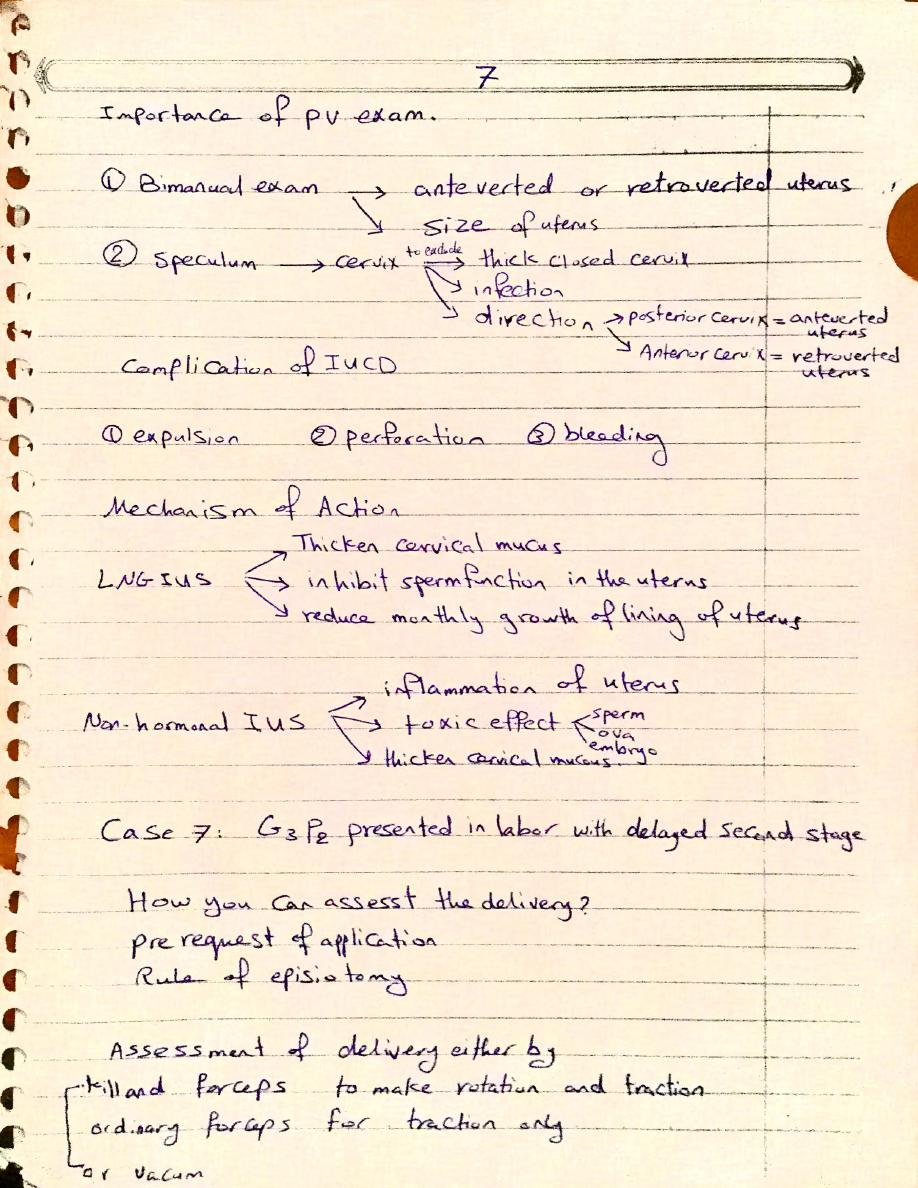 7
Importance of pv exam.
① Bimanual exam → anteverted or retroverted uterus
↘ size of uterus
② Speculum → cervix to exclude → thick closed cervix
↘ infection
↘ direction → posterior cervix = anteverted uterus
↘ Anterior cervix = retroverted uterus
Complication of IUCD
① expulsion ② perforation ③ bleeding
Mechanism of Action
Thicken cervical mucus
LNG IUS → inhibit sperm function in the uterus
↘ reduce monthly growth of lining of uterus
inflammation of uterus
Non-hormonal IUS → toxic effect < sperm
ova
embryo
↘ thicken cervical mucous.
Case 7: G3P2 presented in labor with delayed second stage
How you can assesst the delivery?
pre request of application
Rule of episiotomy
Assessment of delivery either by
killand forceps to make rotation and traction
ordinary forceps for traction only
or vacum